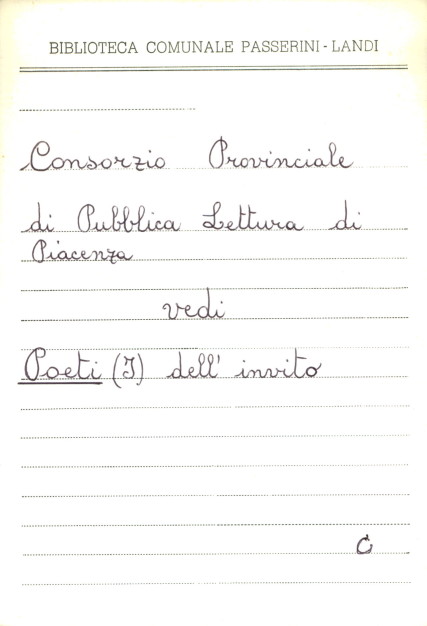 BIBLIOTECA COMUNALE PASSERINI - LANDI
Consorzio Provinciale
di Pubblica Lettura di
Piacenza
vedi
Poeti (I) dell' invito
C